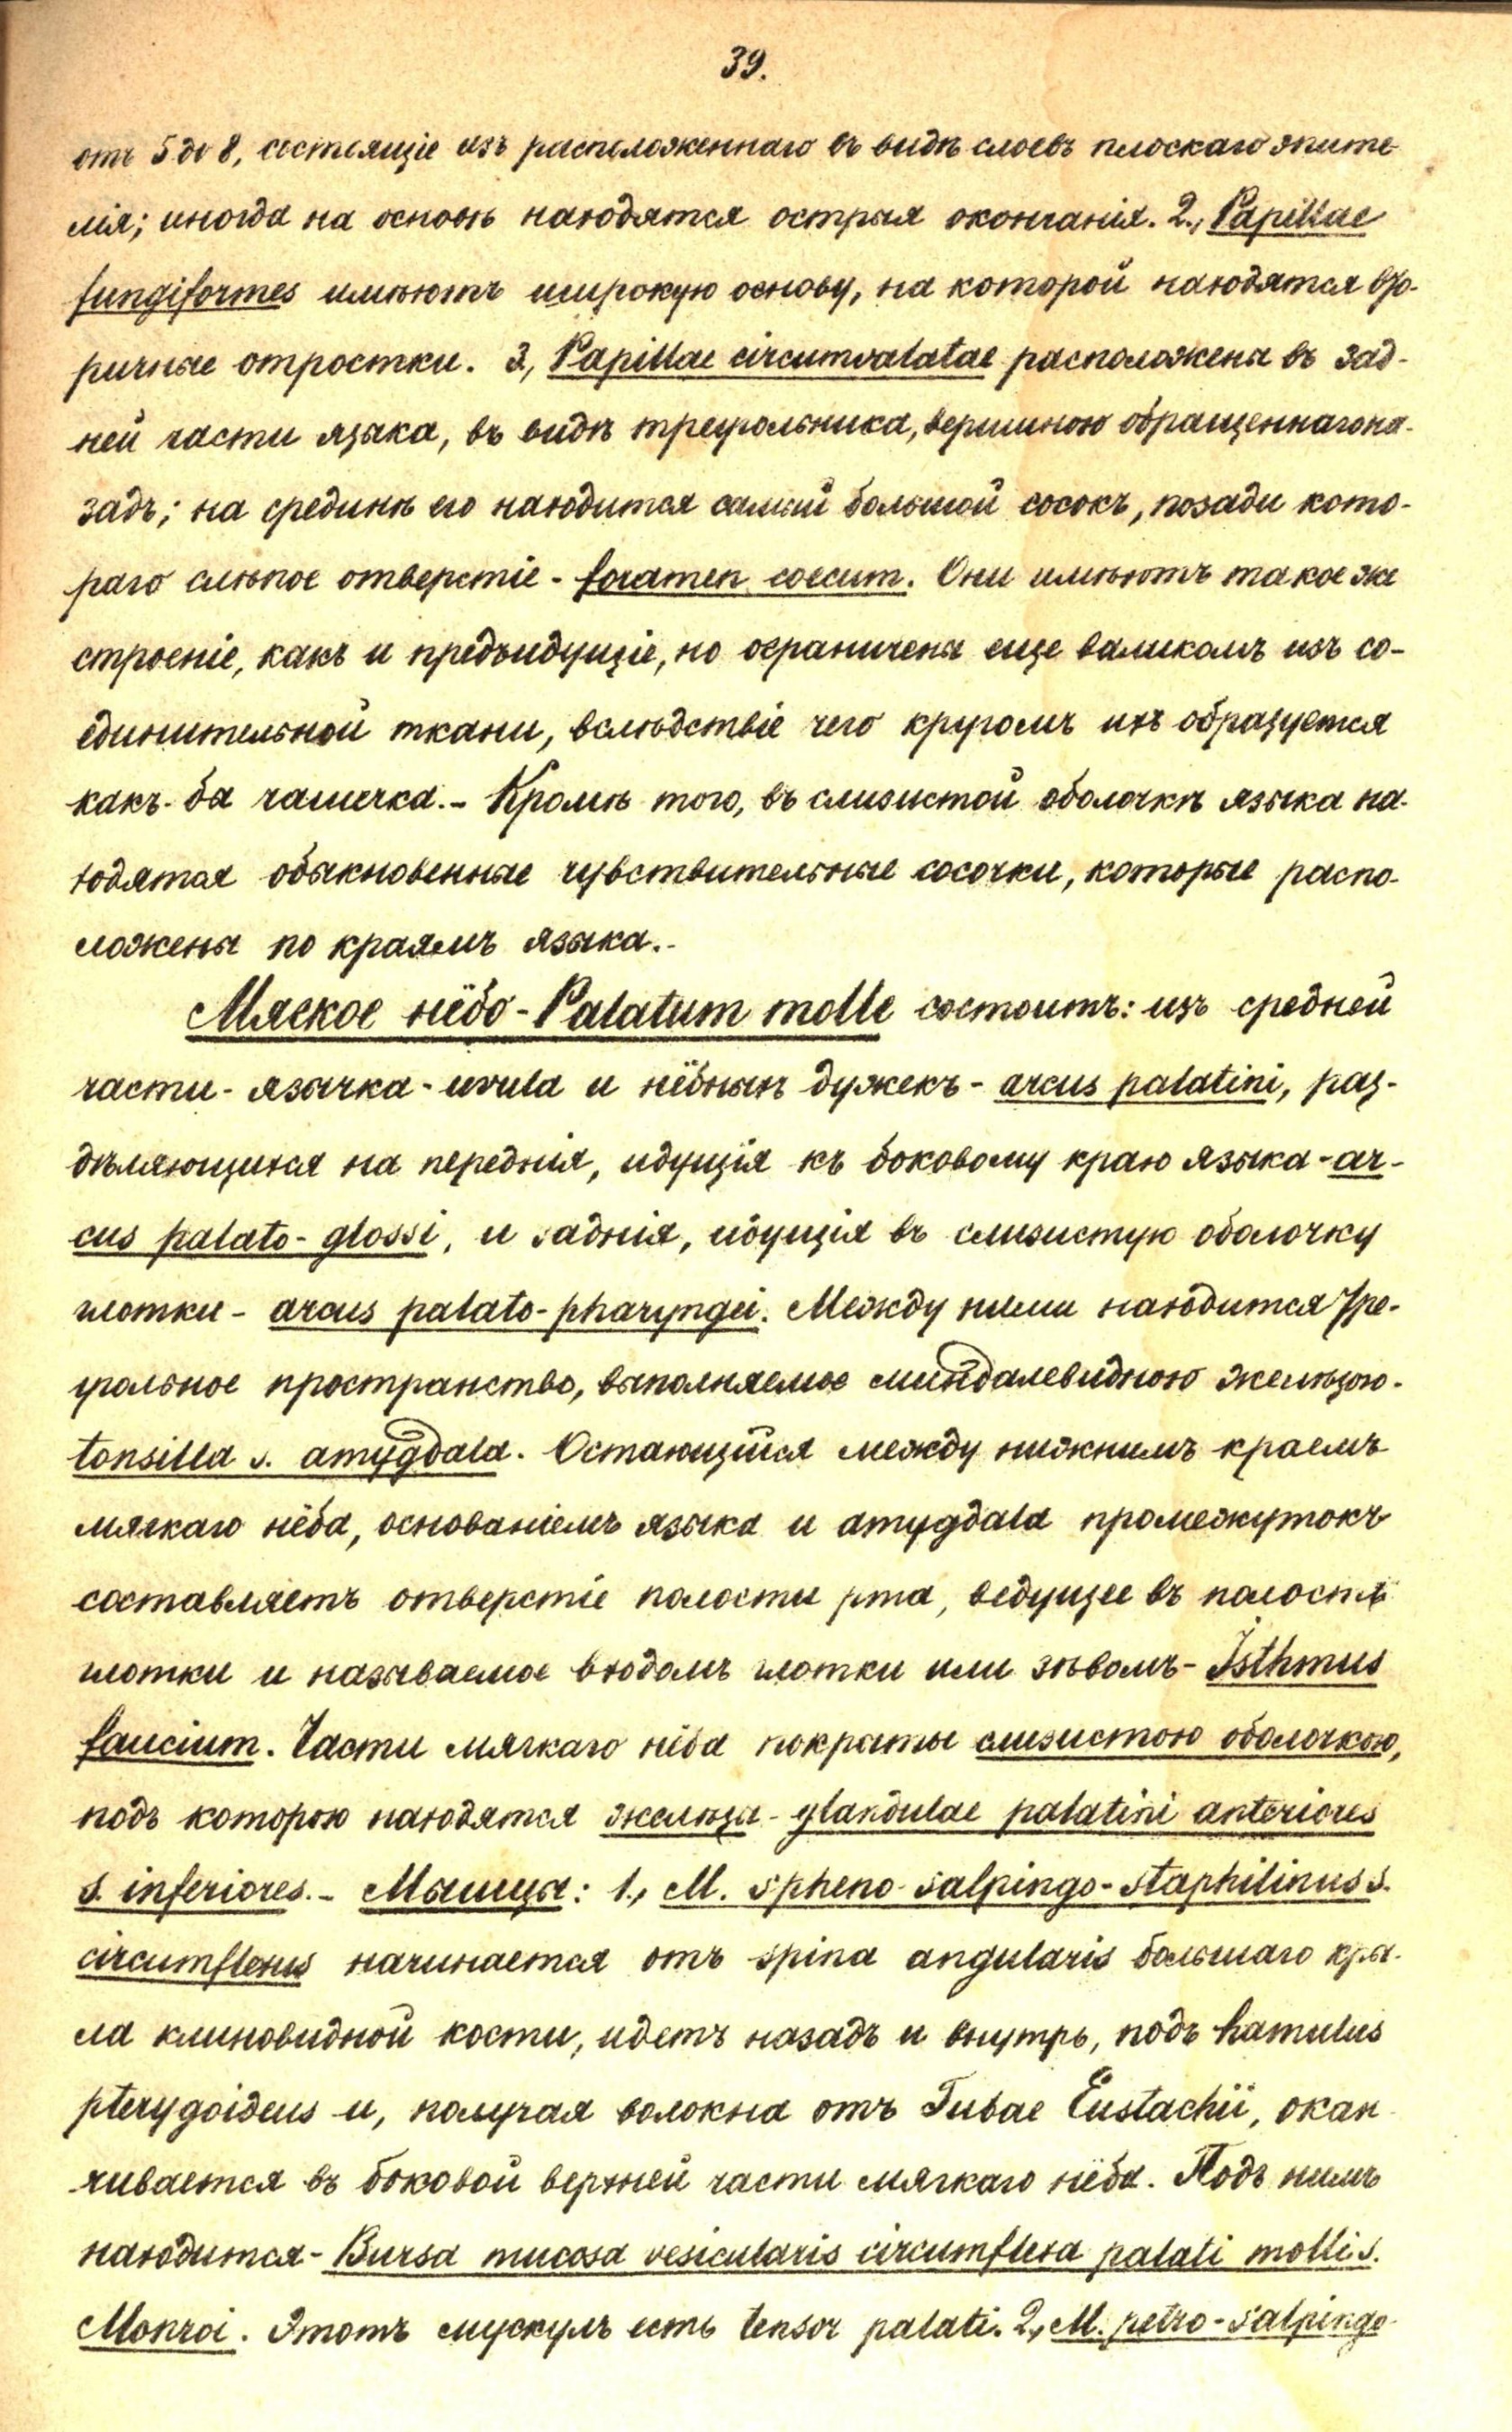 39.
отъ 5 до 8, состоящіе изъ расположеннаго въ видѣ слоевъ плоскаго эпите-
лія; иногда на основѣ находятся острыя окончанія. 2., Papillae
fungiformes имѣютъ широкую основу, на которой находятся вто-
ричные отростки. 3, Papillae circumvalatae расположены въ зад-
ней части языка, въ видѣ треугольника, вершиною обращеннаго на-
задъ; на срединѣ его находится самый большой сосокъ, позади кото-
раго слѣпое отверстіе - foramen coecum. Они имѣютъ такое же
строеніе, какъ и предъидущіе, но ограничены еще валикомъ изъ со-
единительной ткани, вслѣдствіе чего кругомъ ихъ образуется
какъ-бы чашечка. - Кромѣ того, въ слизистой оболочкѣ языка на-
ходятся обыкновенные чувствительные сосочки, которые распо-
ложены по краямъ языка. -
Мягкое нёбо - Palatum molle состоитъ: изъ средней
части - язычка - uvula и нёбныхъ дужекъ - arcus palatini, раз-
дѣляющихся на переднія, идущія къ боковому краю языка - ar-
cus palato-glossi, и заднія, идущія въ слизистую оболочку
глотки - arcus palato-pharyngei. Между ними находится тре-
угольное пространство, выполняемое миндалевидною желѣзою -
tonsilla s. amygdala. Остающійся между нижнимъ краемъ
мягкаго нёба, основаніемъ языка и amygdala промежутокъ
составляетъ отверстіе полости рта, ведущее въ полость
глотки и называемое входомъ глотки или зѣвомъ - Isthmus
faucium. Части мягкаго нёба покрыты слизистою оболочкою,
подъ которою находятся желѣзы - glandulae palatini anteriores
s. inferiores. - Мышцы: 1., M. spheno-salpingo-staphilinus s.
circumflexus начинается отъ spina angularis большаго кры-
ла клиновидной кости, идетъ назадъ и внутрь, подъ hamulus
pterygoideus и, получая волокна отъ Tubae Eustachii, окан-
чивается въ боковой верхней части мягкаго нёба. Подъ нимъ
находится - Bursa mucosa vesicularis circumflexa palati mollis.
Monroi. Этотъ мускулъ есть tensor palati. 2., M. petro-salpingo-